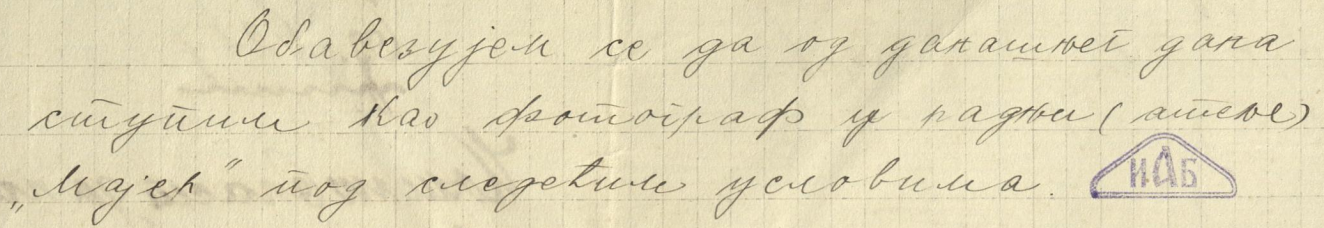 Обавезујем се да од данашњег дана
ступим као фотограф у радњи (атеље)
„Мајер" под следећим условима.
ИАБ